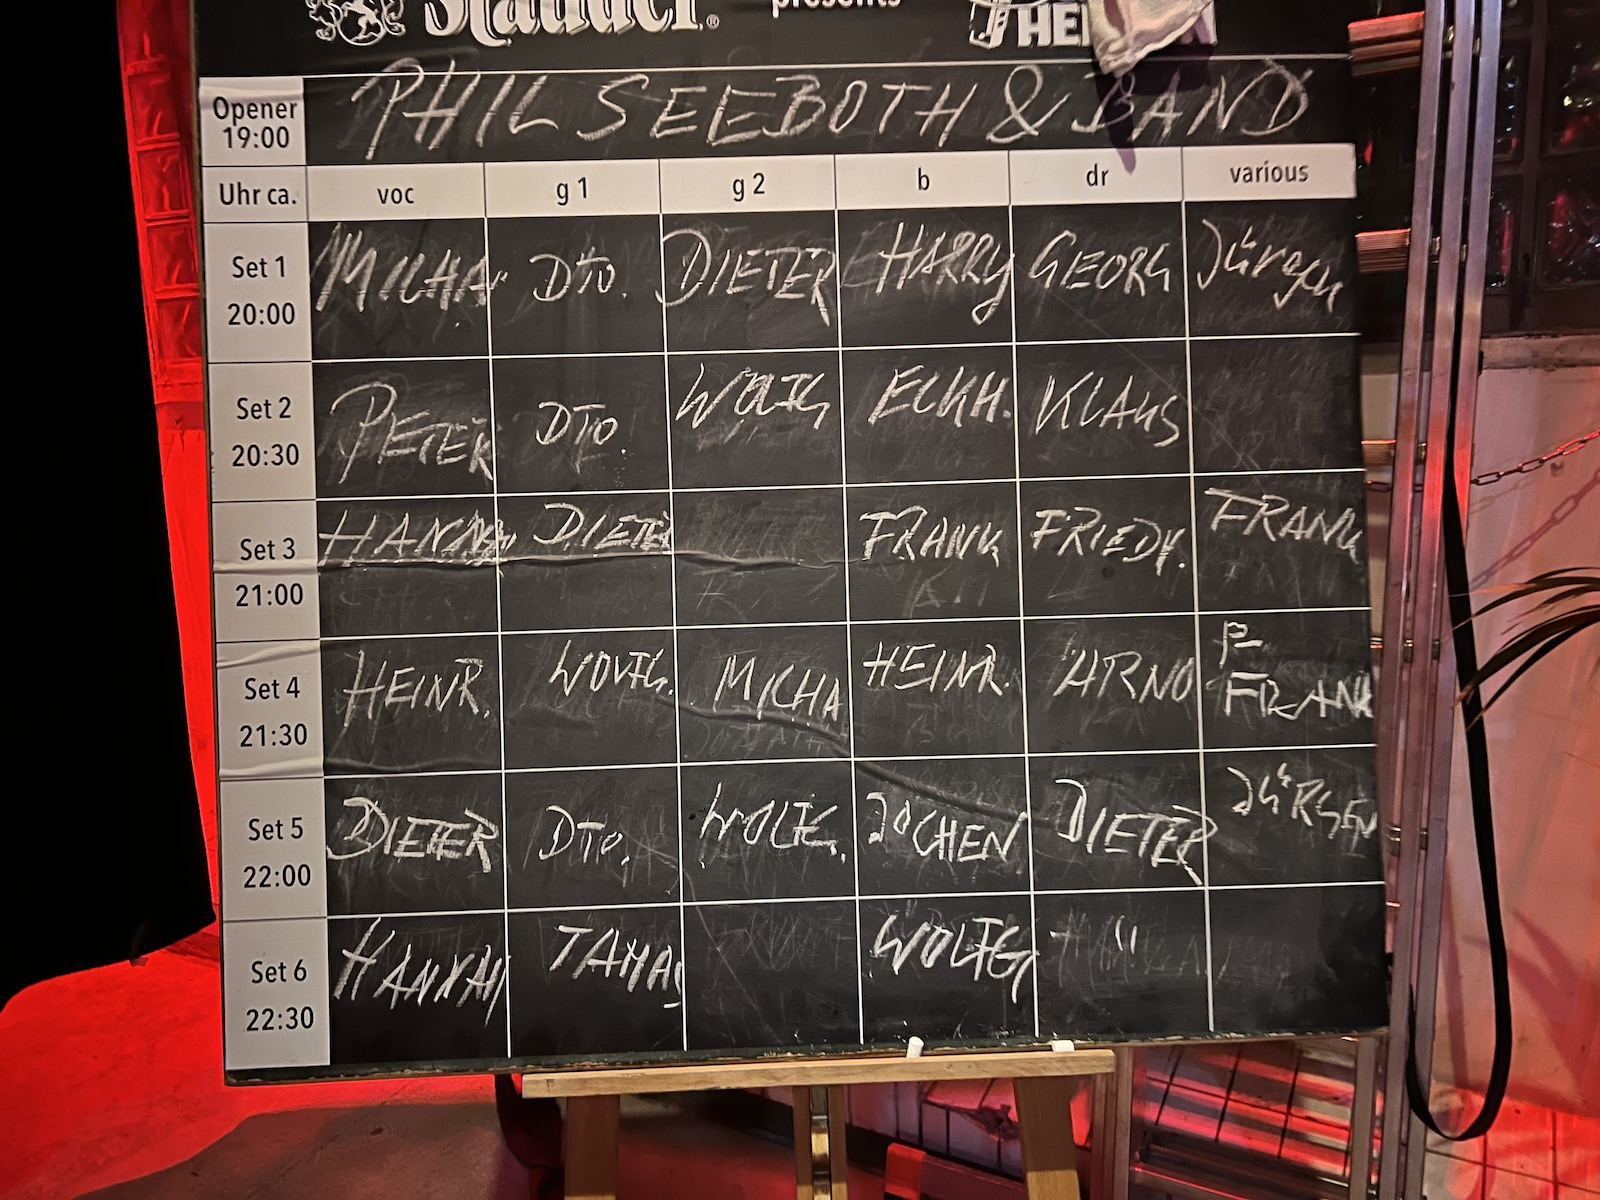 Stauder®
presents
Opener
19:00
PHIL SEEBOTH & BAND
Uhr ca. voc g 1 g 2 b dr various
Set 1
20:00
MICHA DTO. DIETER HARRY GEORG Jürgen
Set 2
20:30
PETER DTO. WOLFG ECKH. KLAUS
Set 3
21:00
HANNAH DIETER FRANK FRIEDH. FRANK
Set 4
21:30
HEINR. WOLFG. MICHA HEINR. ARNO P- FRANK
Set 5
22:00
DIETER DTO. WOLFG. JOCHEN DIETER JÜRGEN
Set 6
22:30
HANNAH TAMAS WOLFG "